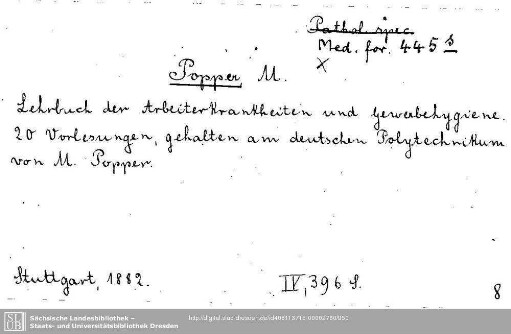 Pathol. spec.
Med. for. 445 s
X
Popper, M.
Lehrbuch der Arbeiterkrankheiten und Gewerbehygiene.
20 Vorlesungen, gehalten am deutschen Polytechnikum
von M. Popper.
Stuttgart, 1882.
IV, 396 S.
8
SLUB
Sächsische Landesbibliothek –
Staats- und Universitätsbibliothek Dresden